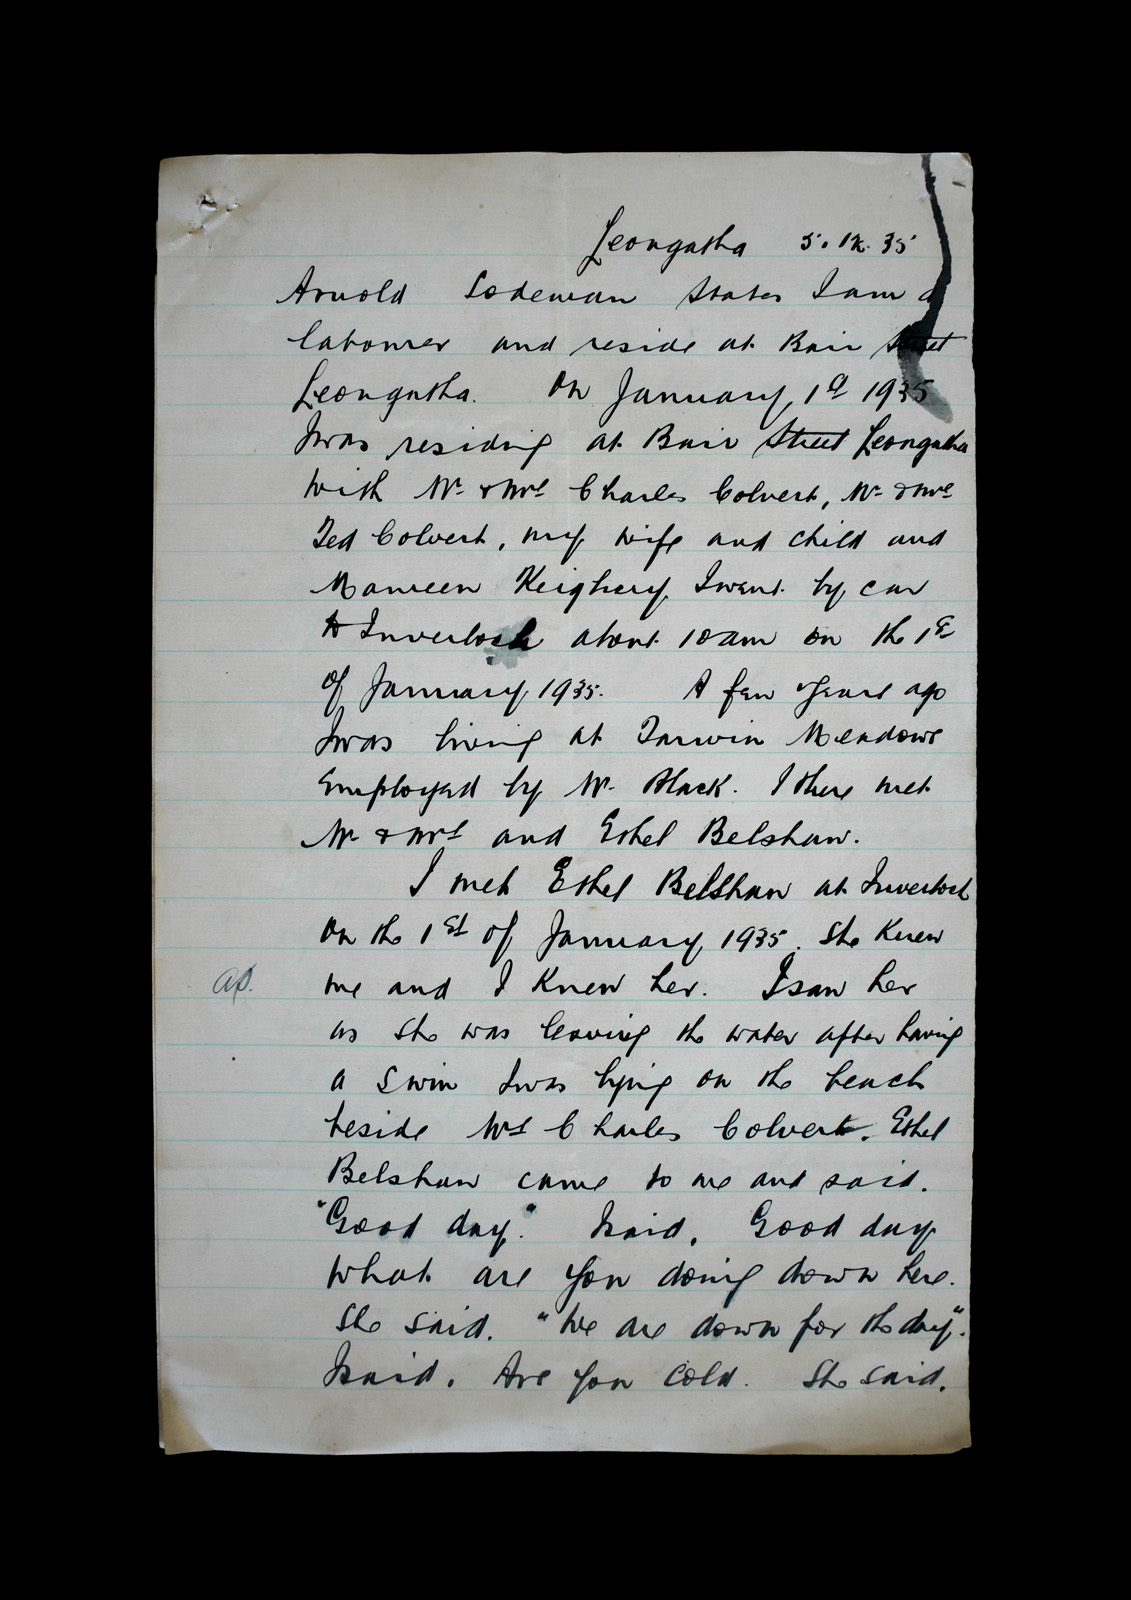 Leongatha 5.12.35
Arnold Sodeman States I am a
labourer and reside at Bair Street
Leongatha. On January 1st 1935
I was residing at Bair Street Leongatha
with Mr & Mrs Charles Colvert, Mr & Mrs
Ted Colvert, my wife and child and
Maureen Keighery I went by car
to Inverloch about 10am on the 1st
of January 1935. A few years ago
I was living at Tarwin Meadows
Employed by Mr Black. I there met
Mr & Mrs and Ethel Belshaw.
I met Ethel Belshaw at Inverloch
On the 1st of January 1935. She Knew
as. me and I Knew her. I saw her
as she was leaving the water after having
a swim I was lying on the beach
beside Mrs Charles Colvert. Ethel
Belshaw came to me and said.
"Good day." I said, Good day
what are you doing down here.
She said. "We are down for the day".
I said. Are you cold. She said.